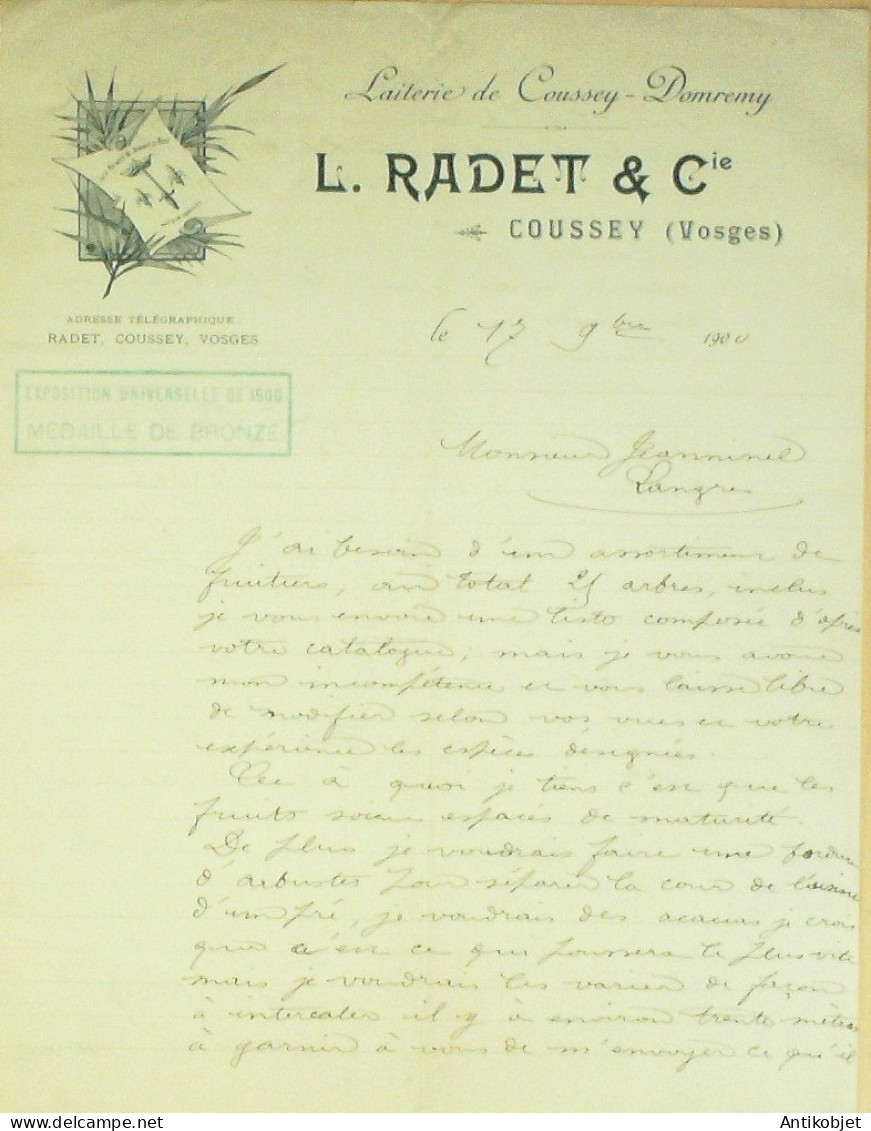 Laiterie de Coussey-Domremy
L. RADET & Cie
COUSSEY (Vosges)
ADRESSE TÉLÉGRAPHIQUE
RADET, COUSSEY, VOSGES
le 17 9bre 1900
EXPOSITION UNIVERSELLE DE 1900
MEDAILLE DE BRONZE
Monsieur Jeanninel
Langres
J'ai besoin d'un assortiment de
fruitiers, au total 25 arbres, inclus
je vous envoie une liste composée d'après
votre catalogue, mais je vous avoue
mon incompétence et vous laisse libre
de modifier selon vos vues et votre
expérience les espèces désignées.
Ce à quoi je tiens c'est que les
fruits soient espacés de maturité.
De plus je voudrais faire une bordure
d'arbustes pour séparer la cour de l'usine
d'un pré, je voudrais des acacias je crois
que c'est ce qui poussera le plus vite
mais je voudrais les varier de façon
à intercaler il y a environ trente mètres
à garnir à vous de m'envoyer ce qu'il
Antikobjet